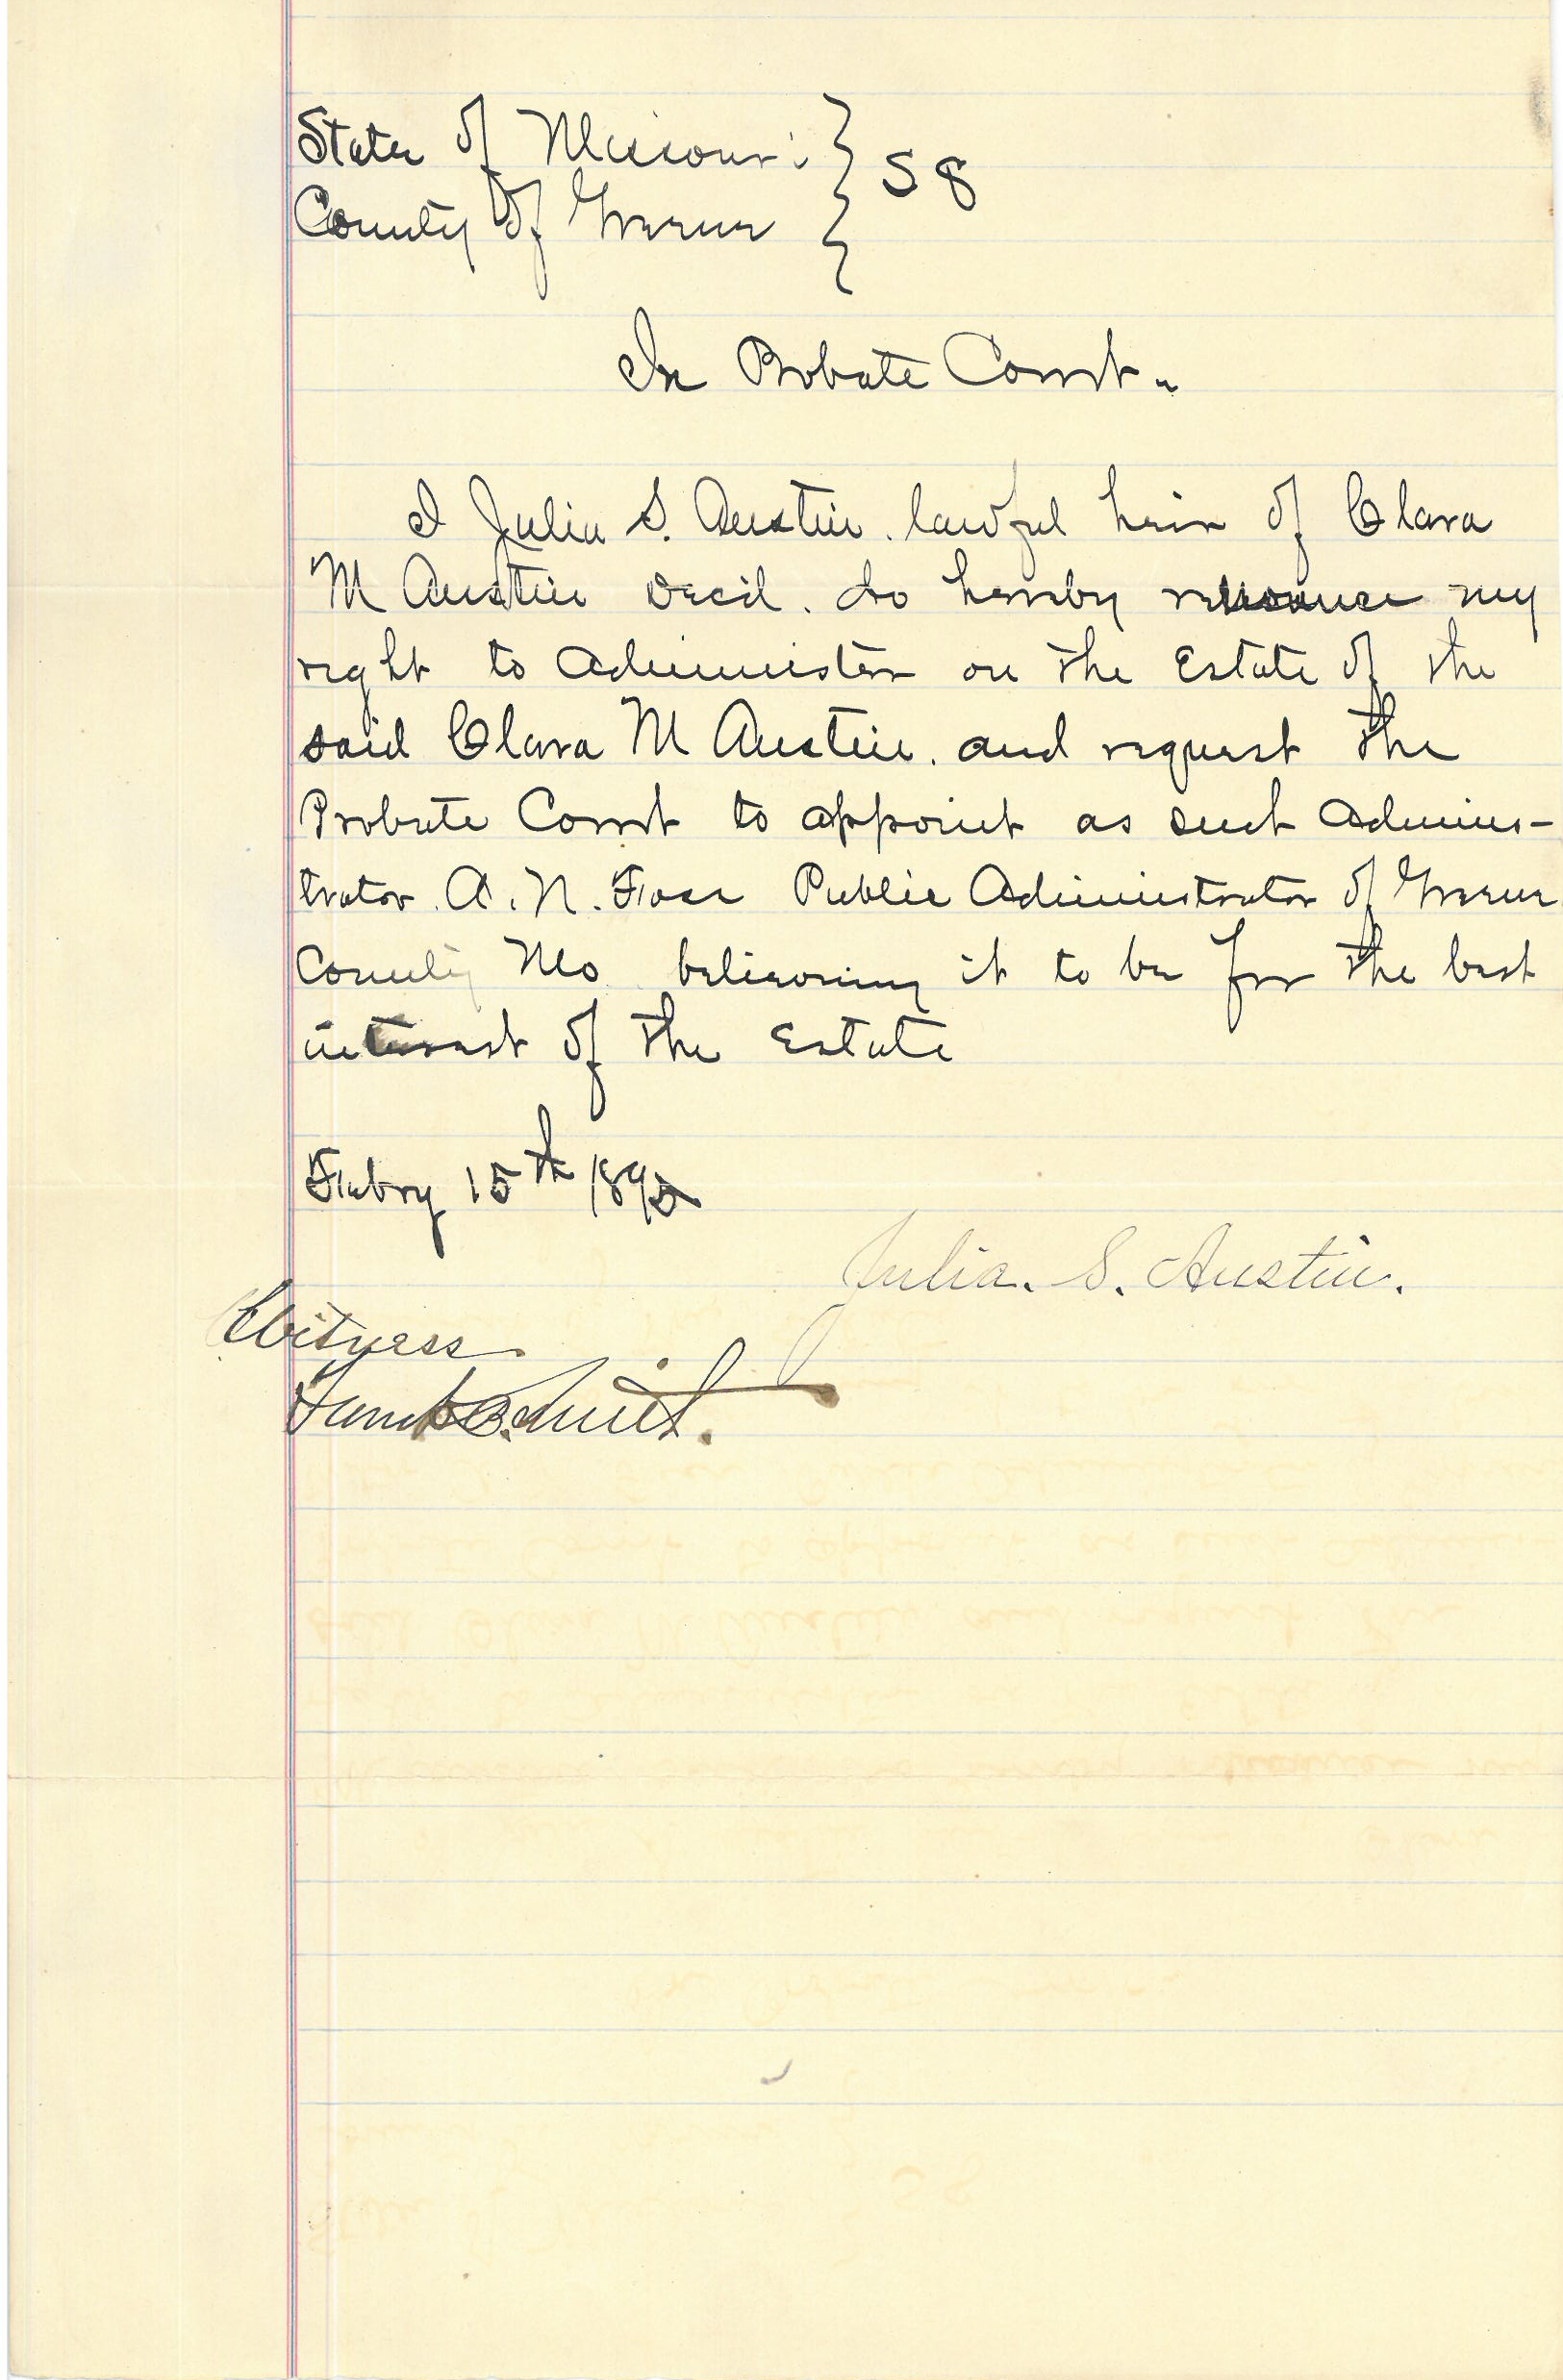 State of Missouri } SS
County of Greene }
In Probate Court.
I Julia S. Austin. lawful heir of Clara
M Austin decd. do hereby renounce my
right to Administer on the Estate of the
said Clara M Austin. and request the
Probate Court to appoint as such Adminis-
trator. A. N. Public Administrator of Greene
County Mo believing it to be for the best
interest of the Estate
Febry 15th
Julia. S. Austin.
Witness